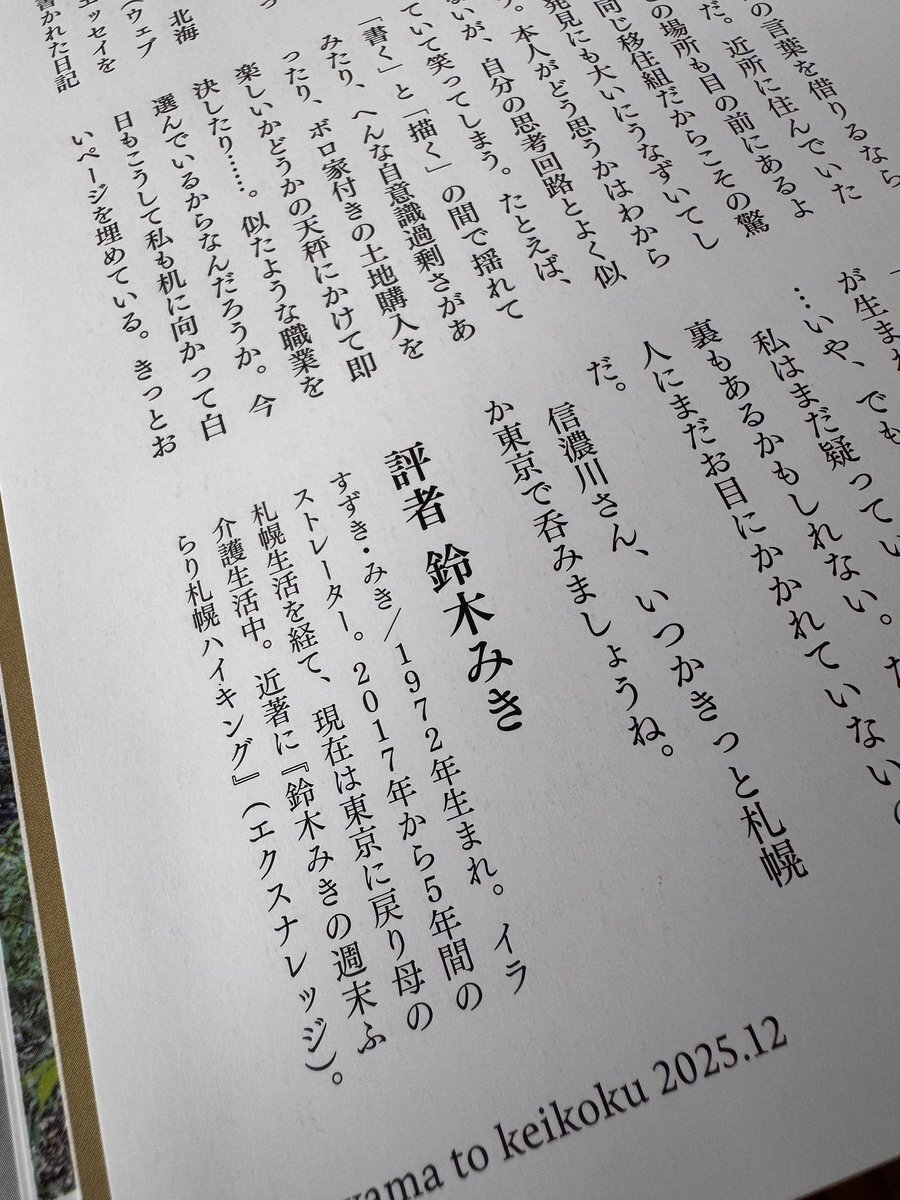 北海
(ウェブ
エッセイを
書かれた日記
の言葉を借りるなら
だ。近所に住んでいた
の場所も目の前にあるよ
同じ移住組だからこその驚
発見にも大いにうなずいてし
。本人がどう思うかはわから
ないが、自分の思考回路とよく似
ていて笑ってしまう。たとえば、
「書く」と「描く」の間で揺れて
みたり、へんな自意識過剰さがあ
ったり、ボロ家付きの土地購入を
楽しいかどうかの天秤にかけて即
決したり……。似たような職業を
選んでいるからなんだろうか。今
日もこうして私も机に向かって白
いページを埋めている。きっとお
が生ま
…いや、でも
私はまだ疑ってい
裏もあるかもしれない。た
人にまだお目にかかれていないの
だ。
信濃川さん、いつかきっと札幌
か東京で呑みましょうね。
評者 鈴木みき
すずき・みき/1972年生まれ。イラ
ストレーター。2017年から5年間の
札幌生活を経て、現在は東京に戻り母の
介護生活中。近著に『鈴木みきの週末ふ
らり札幌ハイキング』(エクスナレッジ)。
yama to keikoku 2025.12